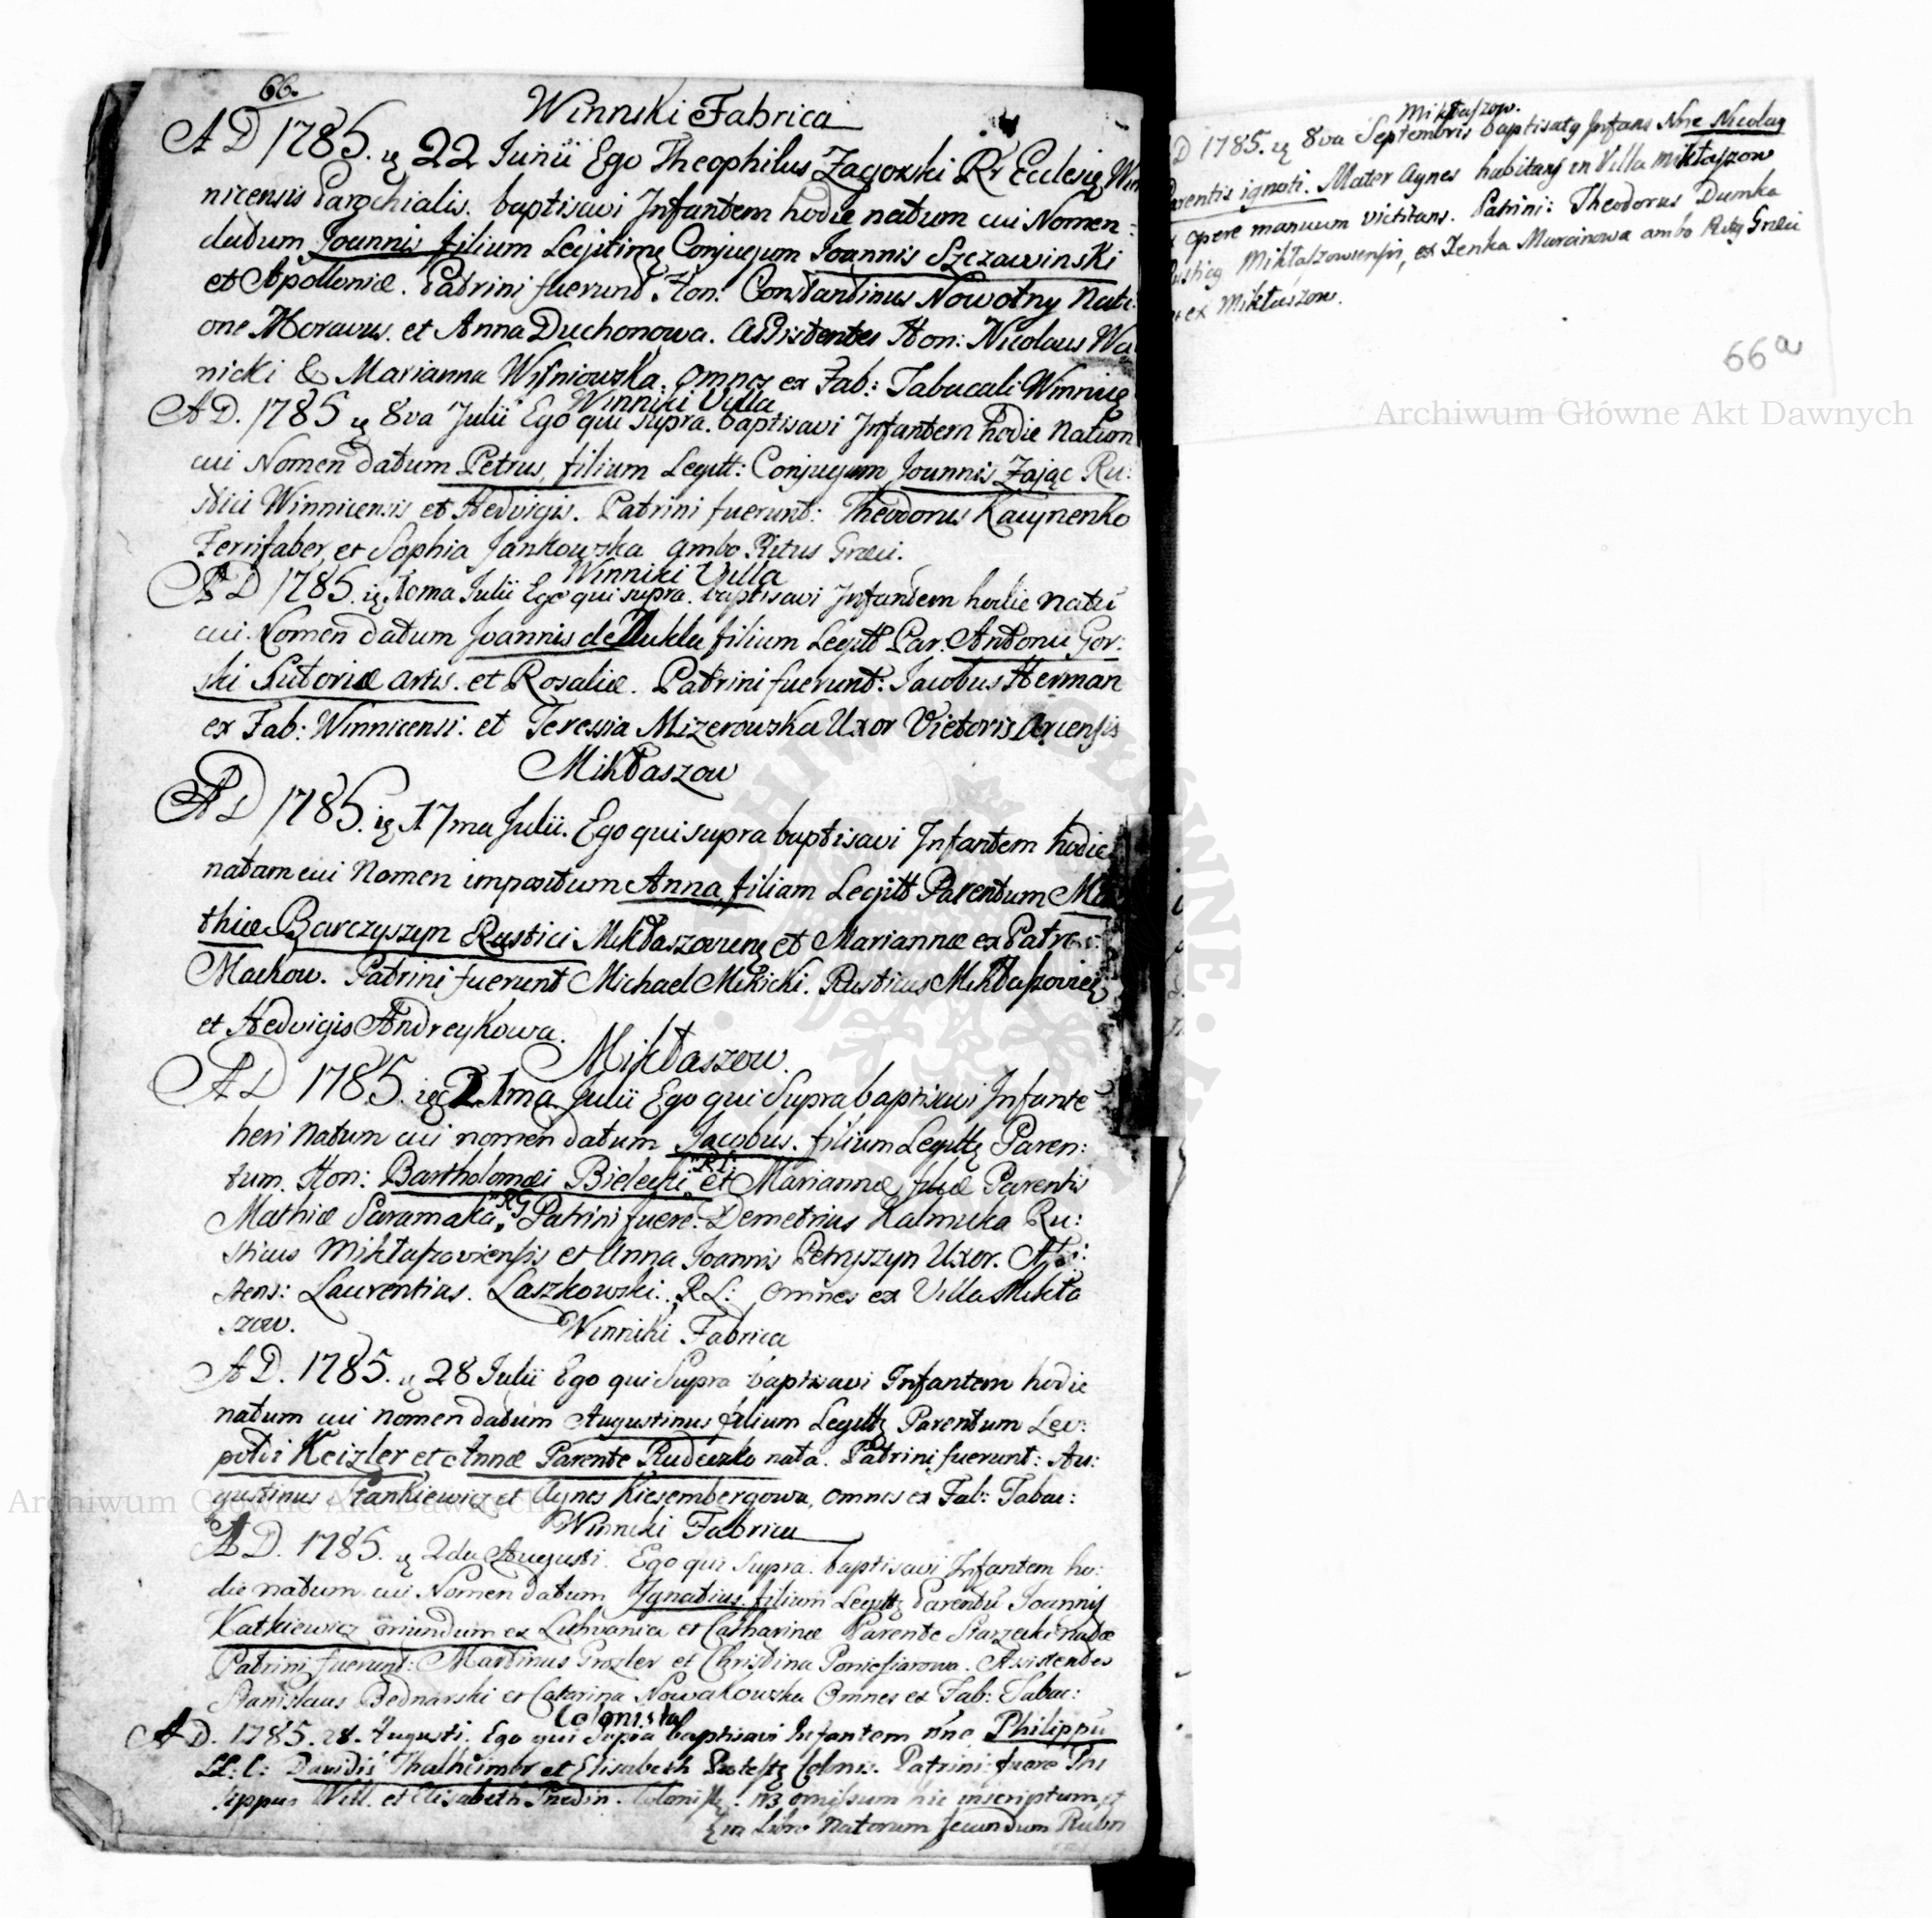 66.
Winniki Fabrica
A D 1785. ię 22 Junii Ego Theophilus Zagorski Rr Ecclesię Win
nicensis Parochialis. baptisavi Infantem hodie natum cui Nomen
datum Joannis filium Legitimę Conjugum Joannis Szczawinski
et Apolloniæ. Patrini fuerunt Hon: Constantinus Nowotny Nati:
one Moravus. et Anna Duchonowa. Assistentes Hon: Nicolaus Wa
nicki & Marianna Wiśniowska. omnes ex Fab: Tabacali Winnię
Winniki Villa
A D. 1785 ię 8va Julii Ego qui supra. baptisavi Infantem hodie Natum
cui Nomen datum Petrus, filium Legitt: Conjugum Joannis Zając Ru:
stici Winnicensis et Hedvigis. Patrini fuerunt: Theodorus
Ferrifaber et Sophia Jankowska ambo Ritus Græci.
Winniki Villa
A D 1785. ię Julii Ego qui supra. baptisavi Infantem hodie natū
cui Nomen datum Joannis de Dukla filium Legitt Par. Antonii Gor:
ski Sutoriæ artis. et Rosaliæ. Patrini fuerunt: Jacobus Herman
ex Fab: Winnicensi: et Teressia Mizerowska Uxor Vietoris
Mikłaszow
A D 1785. ię 17ma Julii. Ego qui supra baptisavi Infantem hodie
natam cui Nomen impositum Anna, filiam Legitt Parentum Ma
thiæ Barczyszyn Rustici et Mariannæ ex Patre
Mackow. Patrini fuerunt Michael Mikicki. Rusticus
et Hedvigis Andreykowa.
Mikłaszow.
A D 1785. ię 21ma Julii Ego qui Supra baptisavi Infantē
heri natum cui nomen datum Jacobus. filium Legittę Paren:
tum. Hon: Bartholomæi Bielecki RL: et Mariannæ filiæ Parentis
Mathiæ Saramaka RG Patrini fuere. Demetrius Kalmuka Ru:
sticus Mikłaszoviensis et Anna Joannis Petryszyn Uxor.
stens: Laurentius. Laszkowski. R L: omnes ex Villa Mikła
szow.
Winniki Fabrica
A D. 1785. ię 28 Julii Ego qui Supra baptisavi Infantem hodie
natum cui nomen datum Augustinus filium Legittę Parentum Leo:
poldi Keizler et Annæ Parente Rudeczko nata. Patrini fuerunt: Au:
gustinus Stankiewicz et Agnes Kiesembergowa, omnes ex Fab: Tabac:
Winniki Fabrica
A D. 1785. ię 2da Augusti. Ego qui Supra. baptisavi Infantem ho:
die natum cui Nomen datum Ignatius. filium Legittę Parentū Joannis
Katkiewicz oriundum ex Lithvania et Catharinæ Parente natæ
Patrini fuerunt: Martinus Prozler et Christina. Assistentes
Stanislaus Bednarski et Catarina Nowakowska Omnes ex Fab: Tabac:
Colonista
A D. 1785. 28. Augusti. Ego qui supra baptisavi Infantem nne Philippū
LL: C: Davidis Thalheimer et Elisabeth Colonis. Patrini fuere Phi
lippus Will. et Elisabeth NB omissum hic inscriptum, et
in Libro Natorum secundum
Mikłaszow.
D 1785. ię 8va Septembris baptisatq Infans Nne Nicolaq
Parentis ignoti. Mater Agnes habitans in Villa Mikłaszow
opere manuum victitans. Patrini: Theodorus Dumka
Rusticq Mikłaszowensis, et Xenka Marcinowa ambo Ritq Græci
ex Mikłaszow.
66 a
Archiwum Główne Akt Dawnych
Archiwum Główne Akt Dawnych